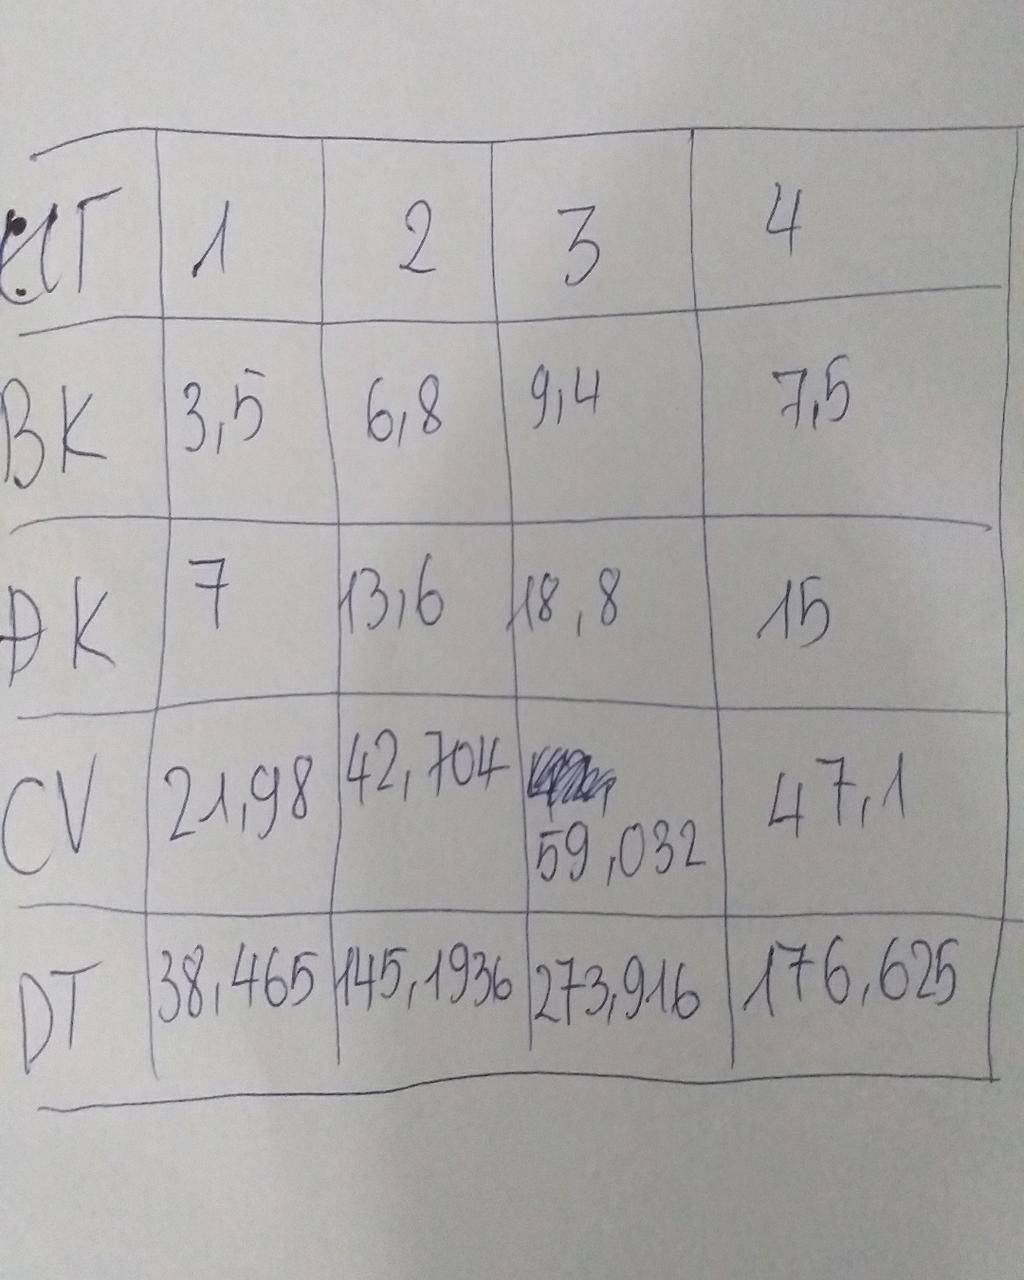 HT 1 2 3 4
BK 3,5 6,8 9,4 7,5
ĐK 7 13,6 18,8 15
CV 21,98 42,704 59,032 47,1
DT 38,465 145,1936 273,916 176,625